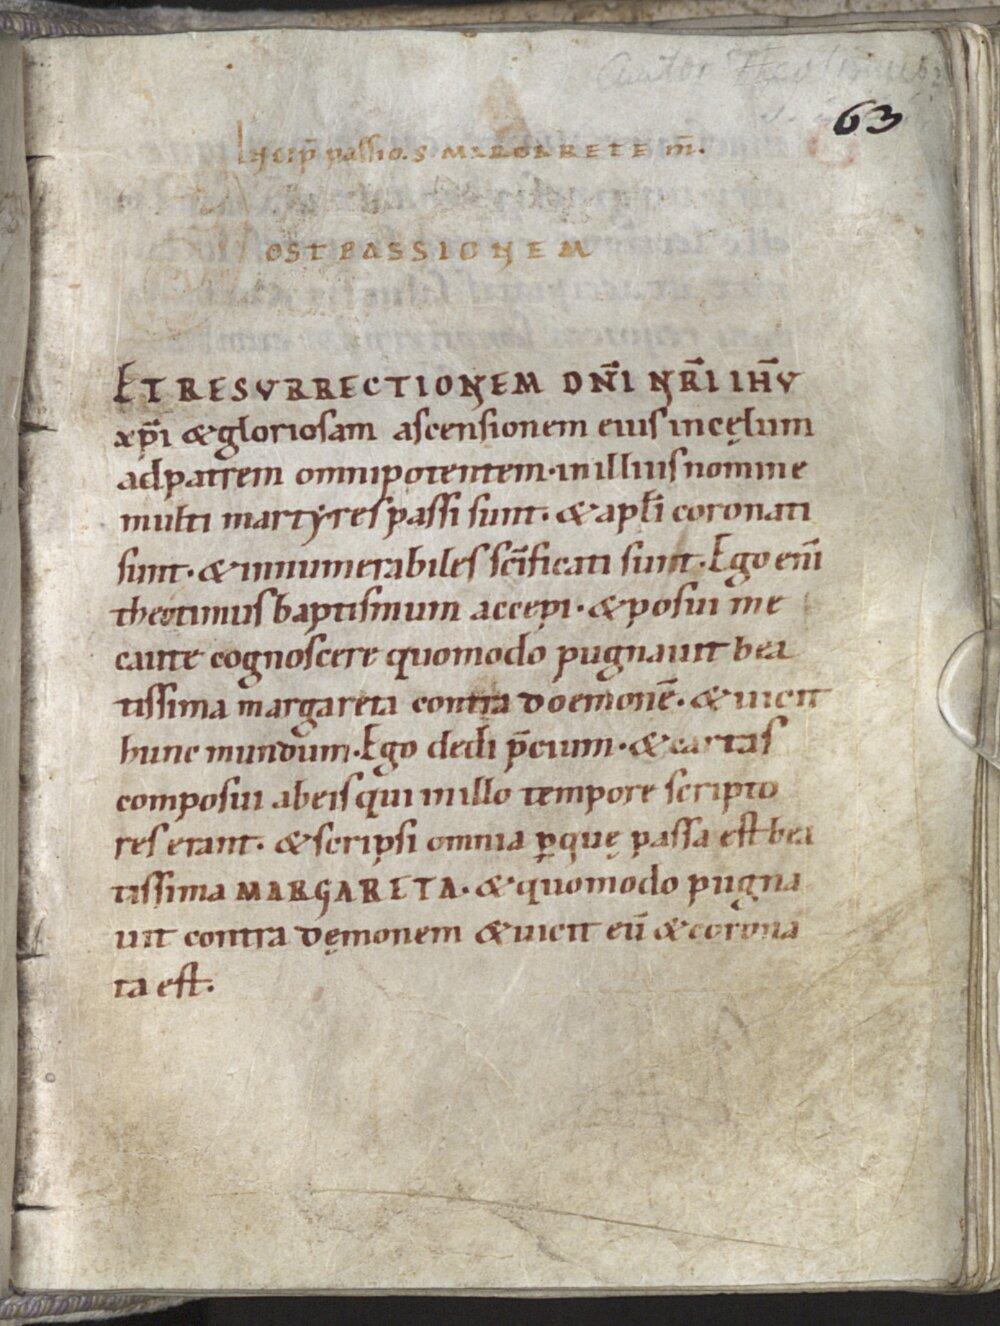 Autor Theotimus
63
Incip̄ passio S MARGARETE m̄.
OST PASSIONEM
ET RESURRECTIONEM DN̄I NR̄I IHŪ
xp̄i & gloriosam ascensionem eius in cęlum
ad patrem omnipotentem · in illius nomine
multi martyres passi sunt · & apl̄i coronati
sunt · & innumerabiles sc̄ificati sunt · Ego eni̅
theotimus baptismum accepi · & posui me
caute cognoscere quomodo pugnauit bea
tissima margareta contra doemonē · & uicit
hunc mundum · Ego dedi p̄cium · & cartas
composui ab eis qui in illo tempore scripto
res erant · & scripsi omnia ꝑ quę passa est bea
tissima MARGARETA · & quomodo pugna
uit contra dęmonem & uicit eū & corona
ta est .